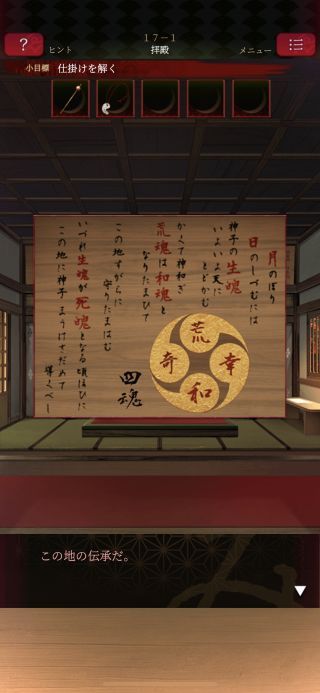 17-1
?
ヒント
拝殿
メニュー
小目標 仕掛けを解く
月のぼり
日のしづむには
神子の生魂
いよいよ天に
とどかむ
かくて神和ぎ
荒魂は和魂と
なりたまひて
この地のすがらに
守りたまはむ
いづれ生魂が死魂となる頃ほひに
この地に神子まうけさだめて
導くべし
四魂
荒
奇
幸
和
この地の伝承だ。